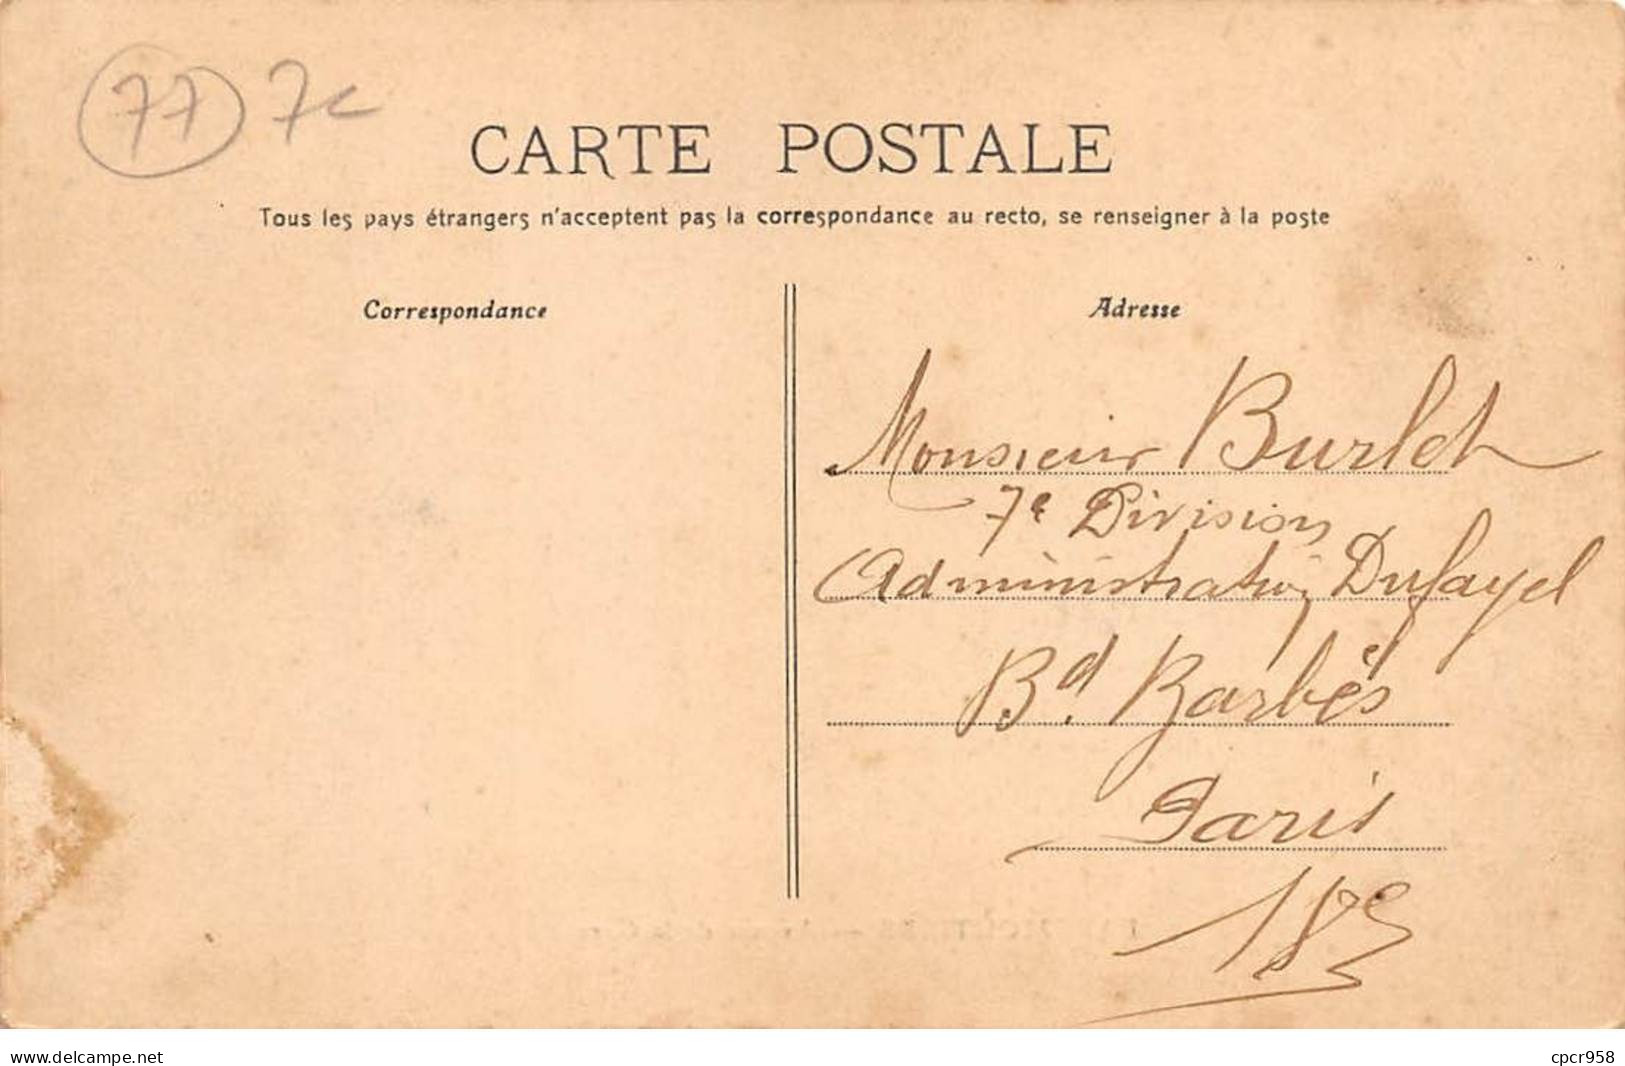 77 7c
CARTE POSTALE
Tous les pays étrangers n'acceptent pas la correspondance au recto, se renseigner à la poste
Correspondance
Adresse
Monsieur Burlet
7e Division
Administration Dufayel
Bd. Barbès
Paris
18e
www.delcampe.net
cpcr958